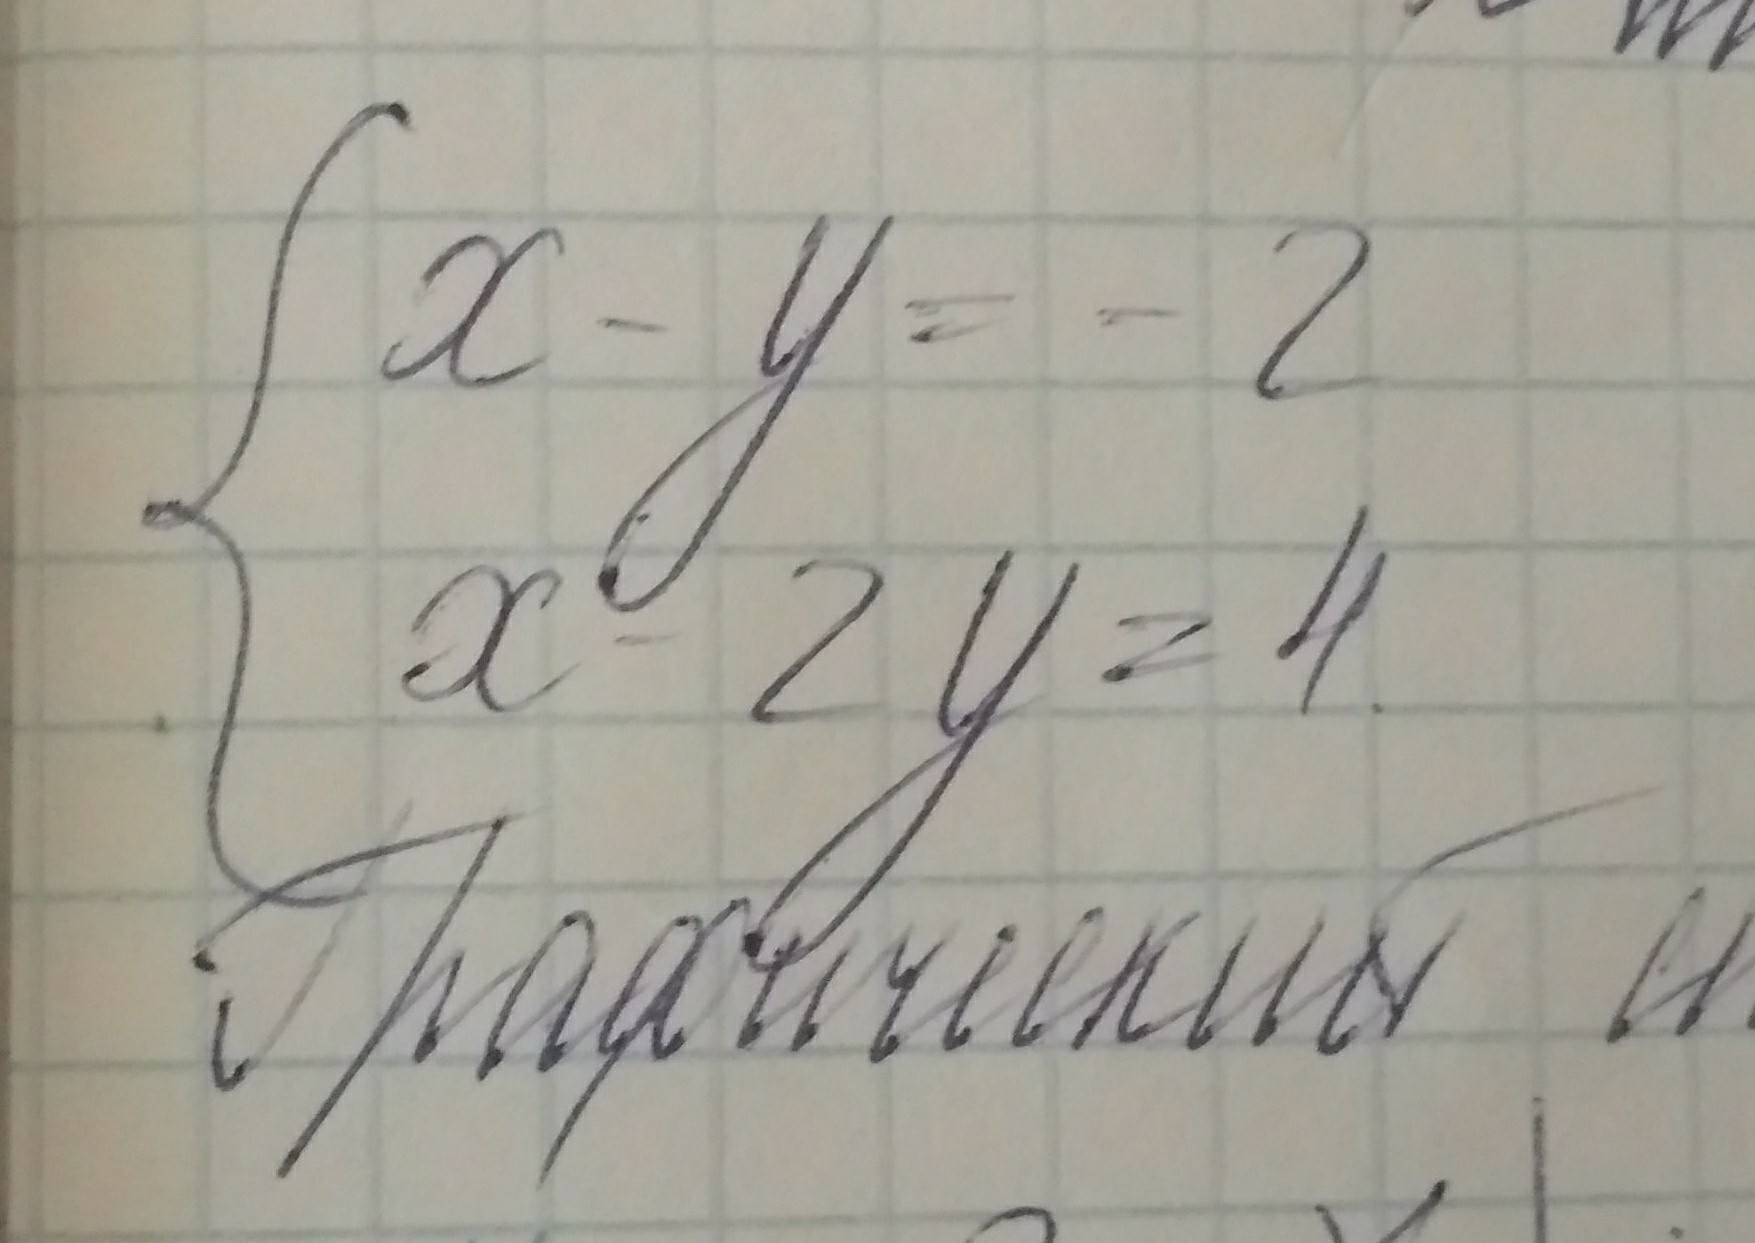 x - y = - 2
x - 2y = 4.
Графический